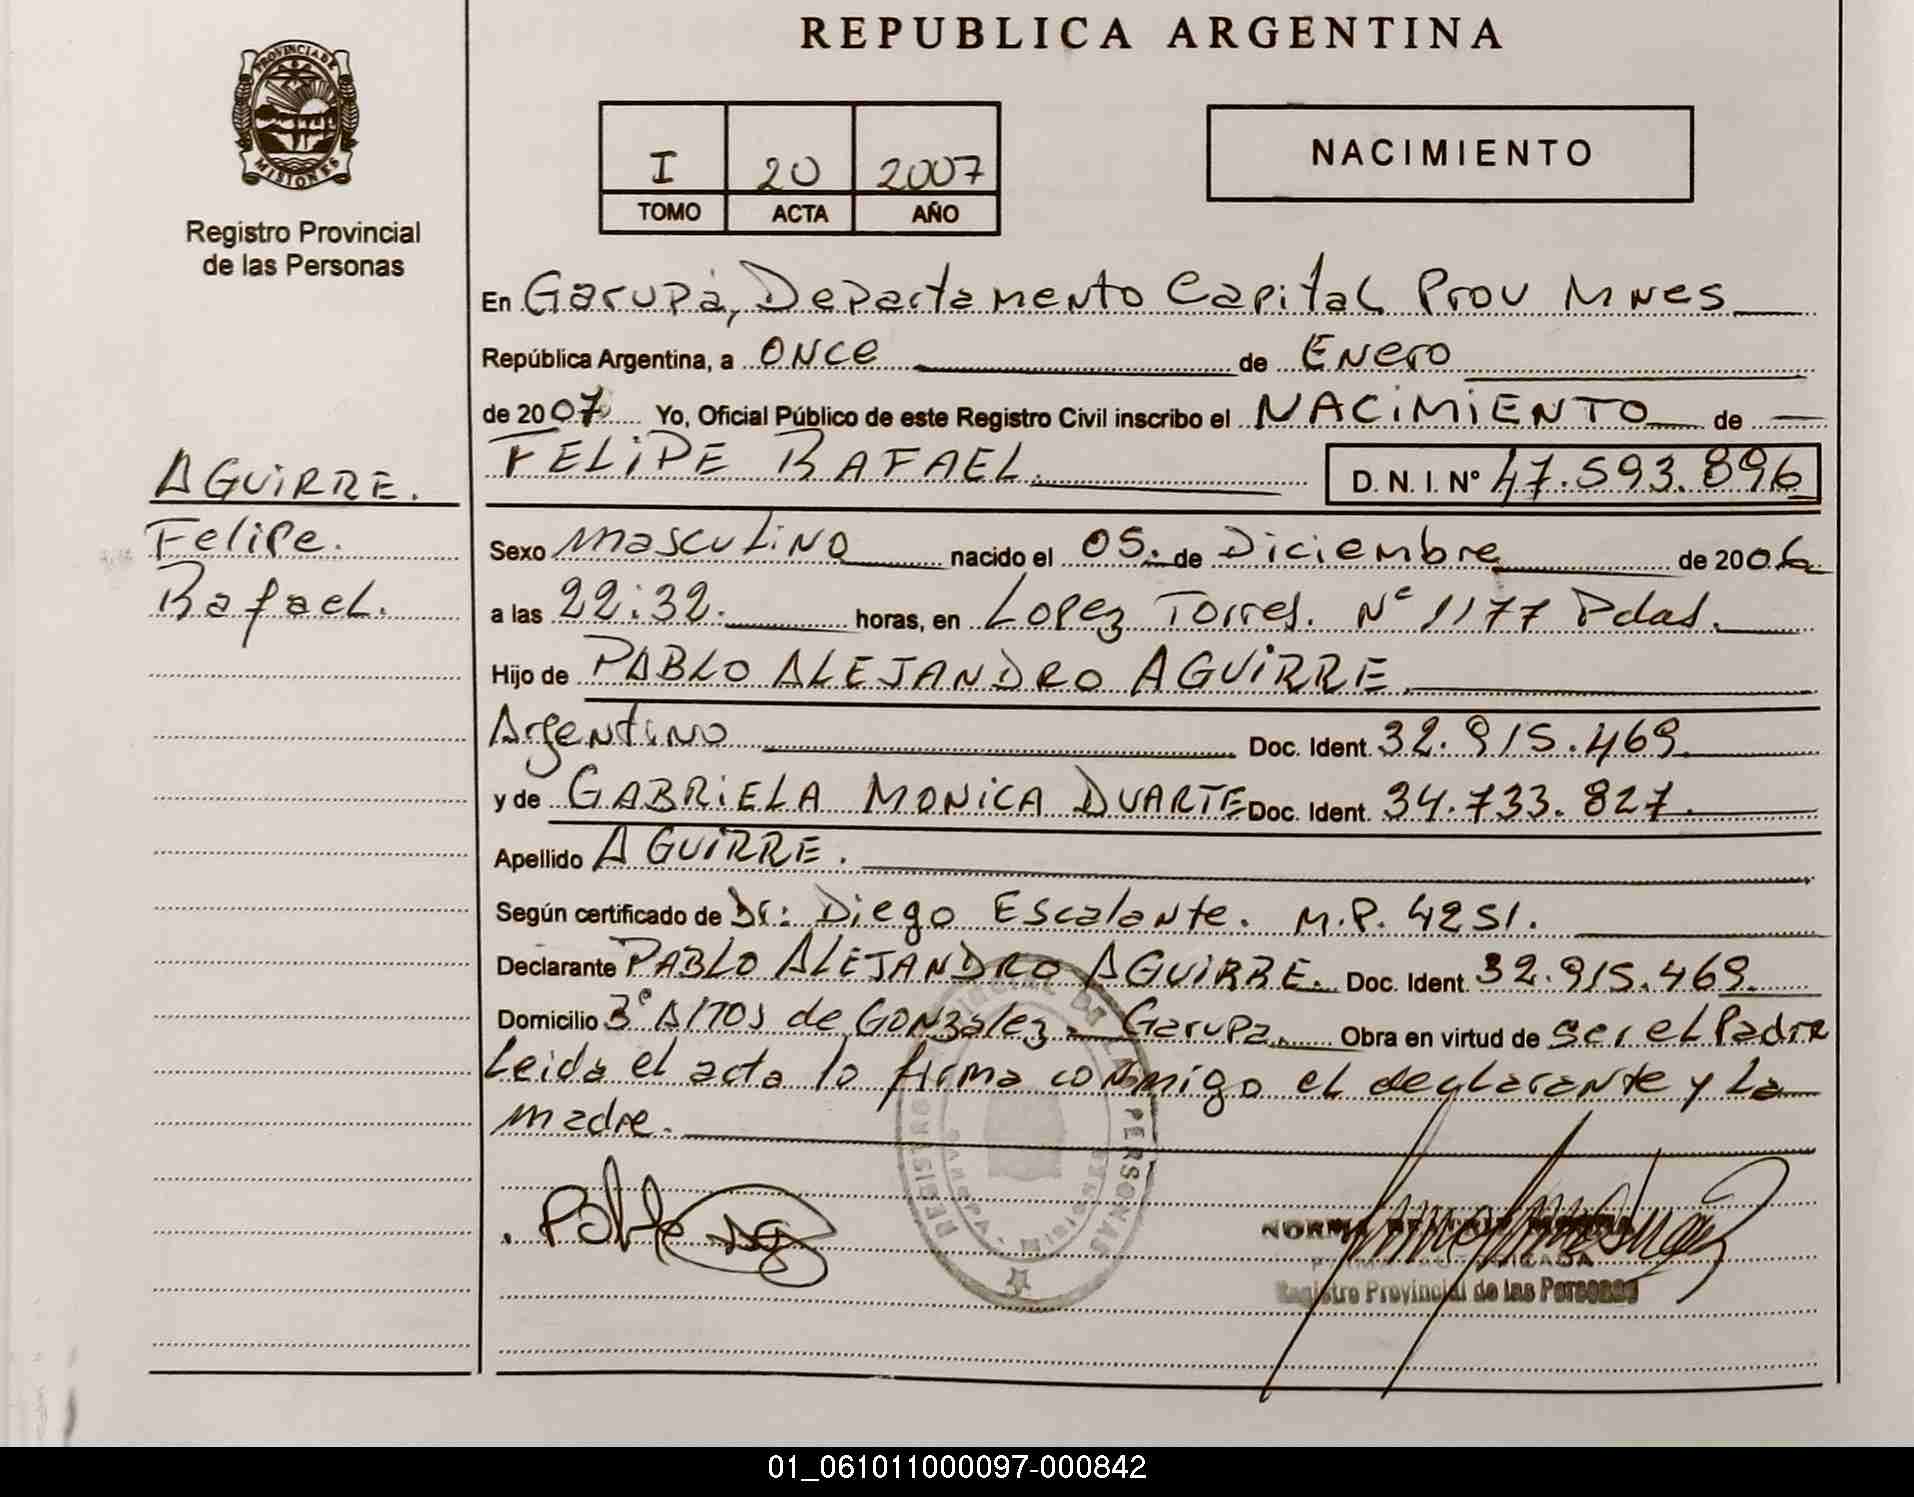 REPUBLICA ARGENTINA
PROVINCIA DE
MISIONES
Registro Provincial
de las Personas
I 20 2007
TOMO ACTA AÑO
NACIMIENTO
En Garupá, Departamento Capital Prov Mnes
República Argentina, a Once de Enero
de 2007 Yo, Oficial Público de este Registro Civil inscribo el NACIMIENTO de
FELIPE RAFAEL. D.N.I. Nº 47.593.896
AGUIRRE.
Felipe.
Rafael.
Sexo masculino nacido el 05. de Diciembre de 2006
a las 22:32. horas, en Lopez Torres. Nº 1177 Pdas.
Hijo de PABLO ALEJANDRO AGUIRRE
Argentino Doc. Ident. 32.915.469
y de GABRIELA MONICA DUARTE Doc. Ident. 34.733.827.
Apellido AGUIRRE.
Según certificado de Dr: Diego Escalante. M.P. 4251.
Declarante PABLO ALEJANDRO AGUIRRE. Doc. Ident. 32.915.469
Domicilio Bº Altos de Gonzalez - Garupa. Obra en virtud de ser el Padre
Leida el acta lo firma conmigo el declarante y la
madre.
PERSONAS
NORMA
Registro Provincial de las Personas
01_061011000097-000842